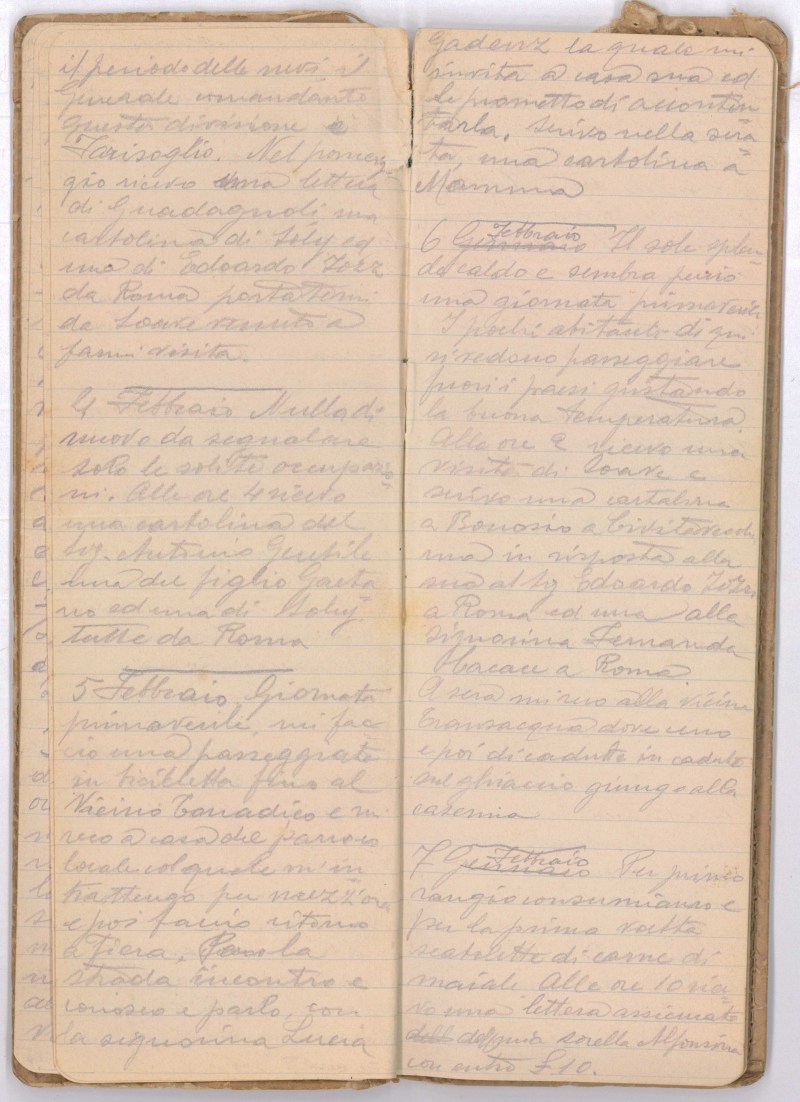 il periodo delle nevi il
Generale comandante
questa divisione è
Tarisoglio. Nel pomerig
gio ricevo una lettera
di Guadagnoli, una
cartolina di Soly ed
una di Edoardo Tozz
da Roma portatemi
da Soave venuto a
farmi visita.
4 Febbraio Nulla di
nuovo da segnalare
solo le solite occupazio
ni. Alle ore 4 ricevo
una cartolina del
Sig. Antonio Gentile
una del figlio Gaeta
no ed una di Soly
tutte da Roma
5 Febbraio Giornata
primaverile, mi fac
cio una passeggiata
in bicicletta fino al
vicino Tonadico e mi
reco a casa del parroco
locale col quale m'in
trattengo per mezz'ora
e poi faccio ritorno
a Fiera. Per la
strada incontro e
conosco e parlo, con
la signorina Lucia
Gadenz la quale mi
invita a casa sua ed
le prometto di acconten
tarla. Scrivo nella sera
ta, una cartolina a
Mamma
6 Gennaio Febbraio Il sole splen
de caldo e sembra perciò
una giornata primaverile
I pochi abitanti di qui
si vedono passeggiare
fuori i paesi gustando
la buona temperatura
Alle ore 2 ricevo una
visita di Soave e
scrivo una cartolina
a Bonosio a Civitavecch
una in risposta alla
sua al Sig Edoardo
a Roma ed una alla
signorina Fernanda
a Roma.
A sera mi reco alla vicina
Transacqua dove ceno
e poi di cadute in cadute
sul ghiaccio giungo alla
caserma
7 Gennaio Febbraio Per primo
rangio consumiamo e
per la prima volta
scatolette di carne di
maiale Alle ore 10 rice
vo una lettera assicurata
dell della mia sorella Alfonsina
con entro £ 10.